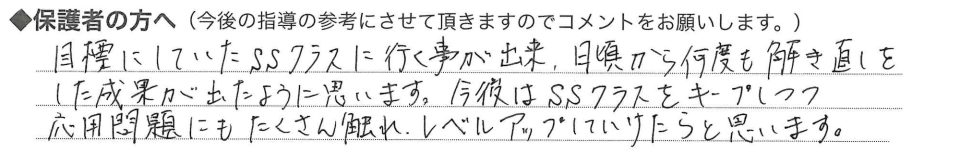 ◆保護者の方へ（今後の指導の参考にさせて頂きますのでコメントをお願いします。）
目標にしていたSSクラスに行く事が出来、日頃から何度も解き直しを
した成果が出たように思います。今後はSSクラスをキープしつつ
応用問題にもたくさん触れ、レベルアップしていけたらと思います。